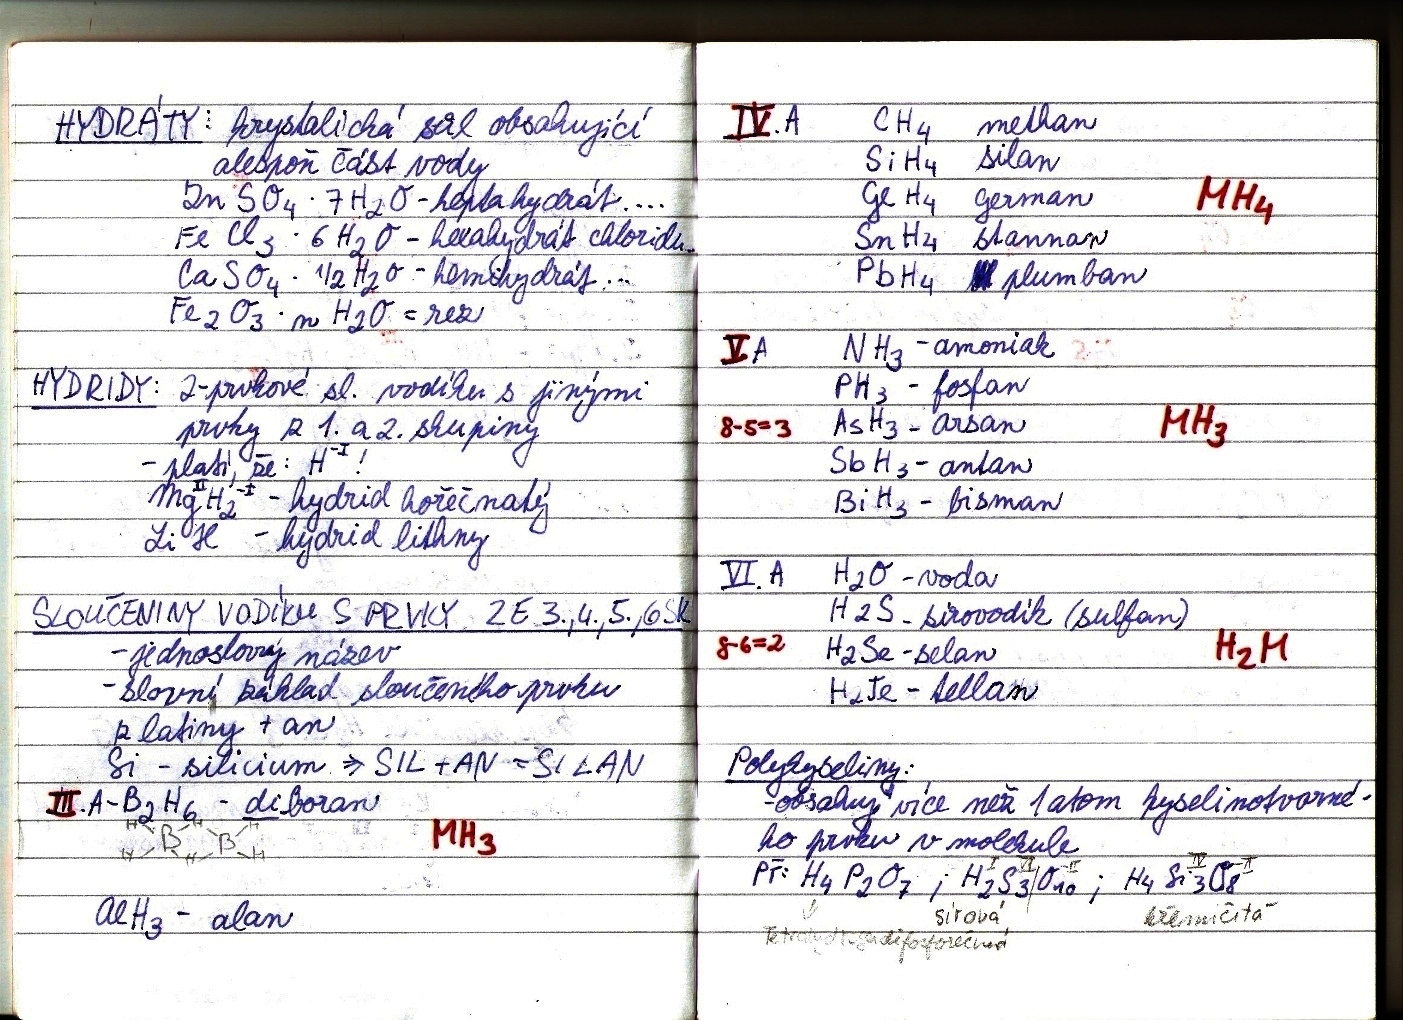 HYDRÁTY: krystalická sůl obsahující
alespoň část vody
ZnSO4 · 7H2O - heptahydrát....
FeCl3 · 6H2O - hexahydrát chloridu..
CaSO4 · 1/2H2O - hemihydrát...
Fe2O3 · nH2O = rez
HYDRIDY: 2-prvkové sl. vodíku s jinými
prvky z 1. a 2. skupiny
- platí, že: H^-I!
Mg^II H2^-I - hydrid hořečnatý
LiH - hydrid lithný
SLOUČENINY VODÍKU S PRVKY ZE 3.,4.,5.,6 SK
- jednoslovný název
- slovní základ sloučeného prvku
z latiny + an
Si - silicium ⇒ SIL + AN = SILAN
III.A - B2H6 - diboran
H B H B H
H H H
MH3
AlH3 - alan
IV.A CH4 methan
SiH4 silan
GeH4 german MH4
SnH4 stannan
PbH4 plumban
V A NH3 - amoniak
PH3 - fosfan
8-5=3 AsH3 - arsan MH3
SbH3 - antan
BiH3 - bisman
VI.A H2O - voda
H2S - sirovodík (sulfan)
8-6=2 H2Se - selan H2M
H2Te - tellan
Polykyseliny:
- obsahují více než 1 atom kyselinotvorné-
ho prvku v molekule
Př: H4P2O7 ; H2^I S3^VI O10^-II ; H4Si3^IV O8^-II
sírová křemičitá